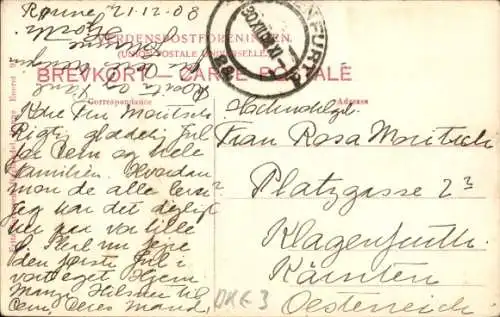 Rønne 21-12-08
VERDENSPOSTFORENINGEN.
(UNION POSTALE UNIVERSELLE)
BREVKORT — CARTE POSTALE
Correspondance
Kære Fru Moritsch
Rigtig glædelig Jul
for Dem og hele
Familien. Hvordan
mon de alle lever?
Jeg har det dejligt
her paa vor lille
Ø. Skal nu fejre
den første Jul i
vort eget Hjem
Mange Hilsner til
Dem, Deres Mand,
Adresse
Frau Rosa Moritsch
Platzgasse 2
Klagenfurth
Kärnten
Oesterreich
DKE 3